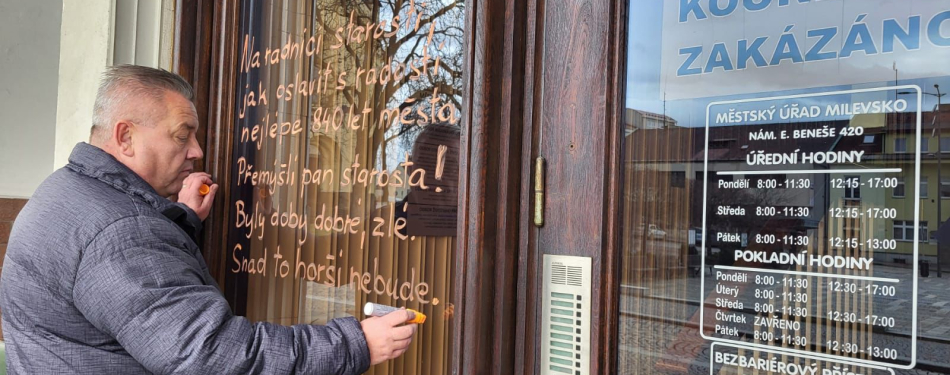 Na radnici starosti,
jak oslavit s radostí,
nejlépe 840 let města
Přemýšlí pan starosta!
Byly doby dobré, zlé.
Snad to horší nebude.
ZAKÁZÁNO
MĚSTSKÝ ÚŘAD MILEVSKO
NÁM. E. BENEŠE 420
ÚŘEDNÍ HODINY
Pondělí 8:00 - 11:30 12:15 - 17:00
Středa 8:00 - 11:30 12:15 - 17:00
Pátek 8:00 - 11:30 12:15 - 13:00
POKLADNÍ HODINY
Pondělí 8:00 - 11:30 12:30 - 17:00
Úterý 8:00 - 11:30
Středa 8:00 - 11:30 12:30 - 17:00
Čtvrtek ZAVŘENO
Pátek 8:00 - 11:30 12:30 - 13:00